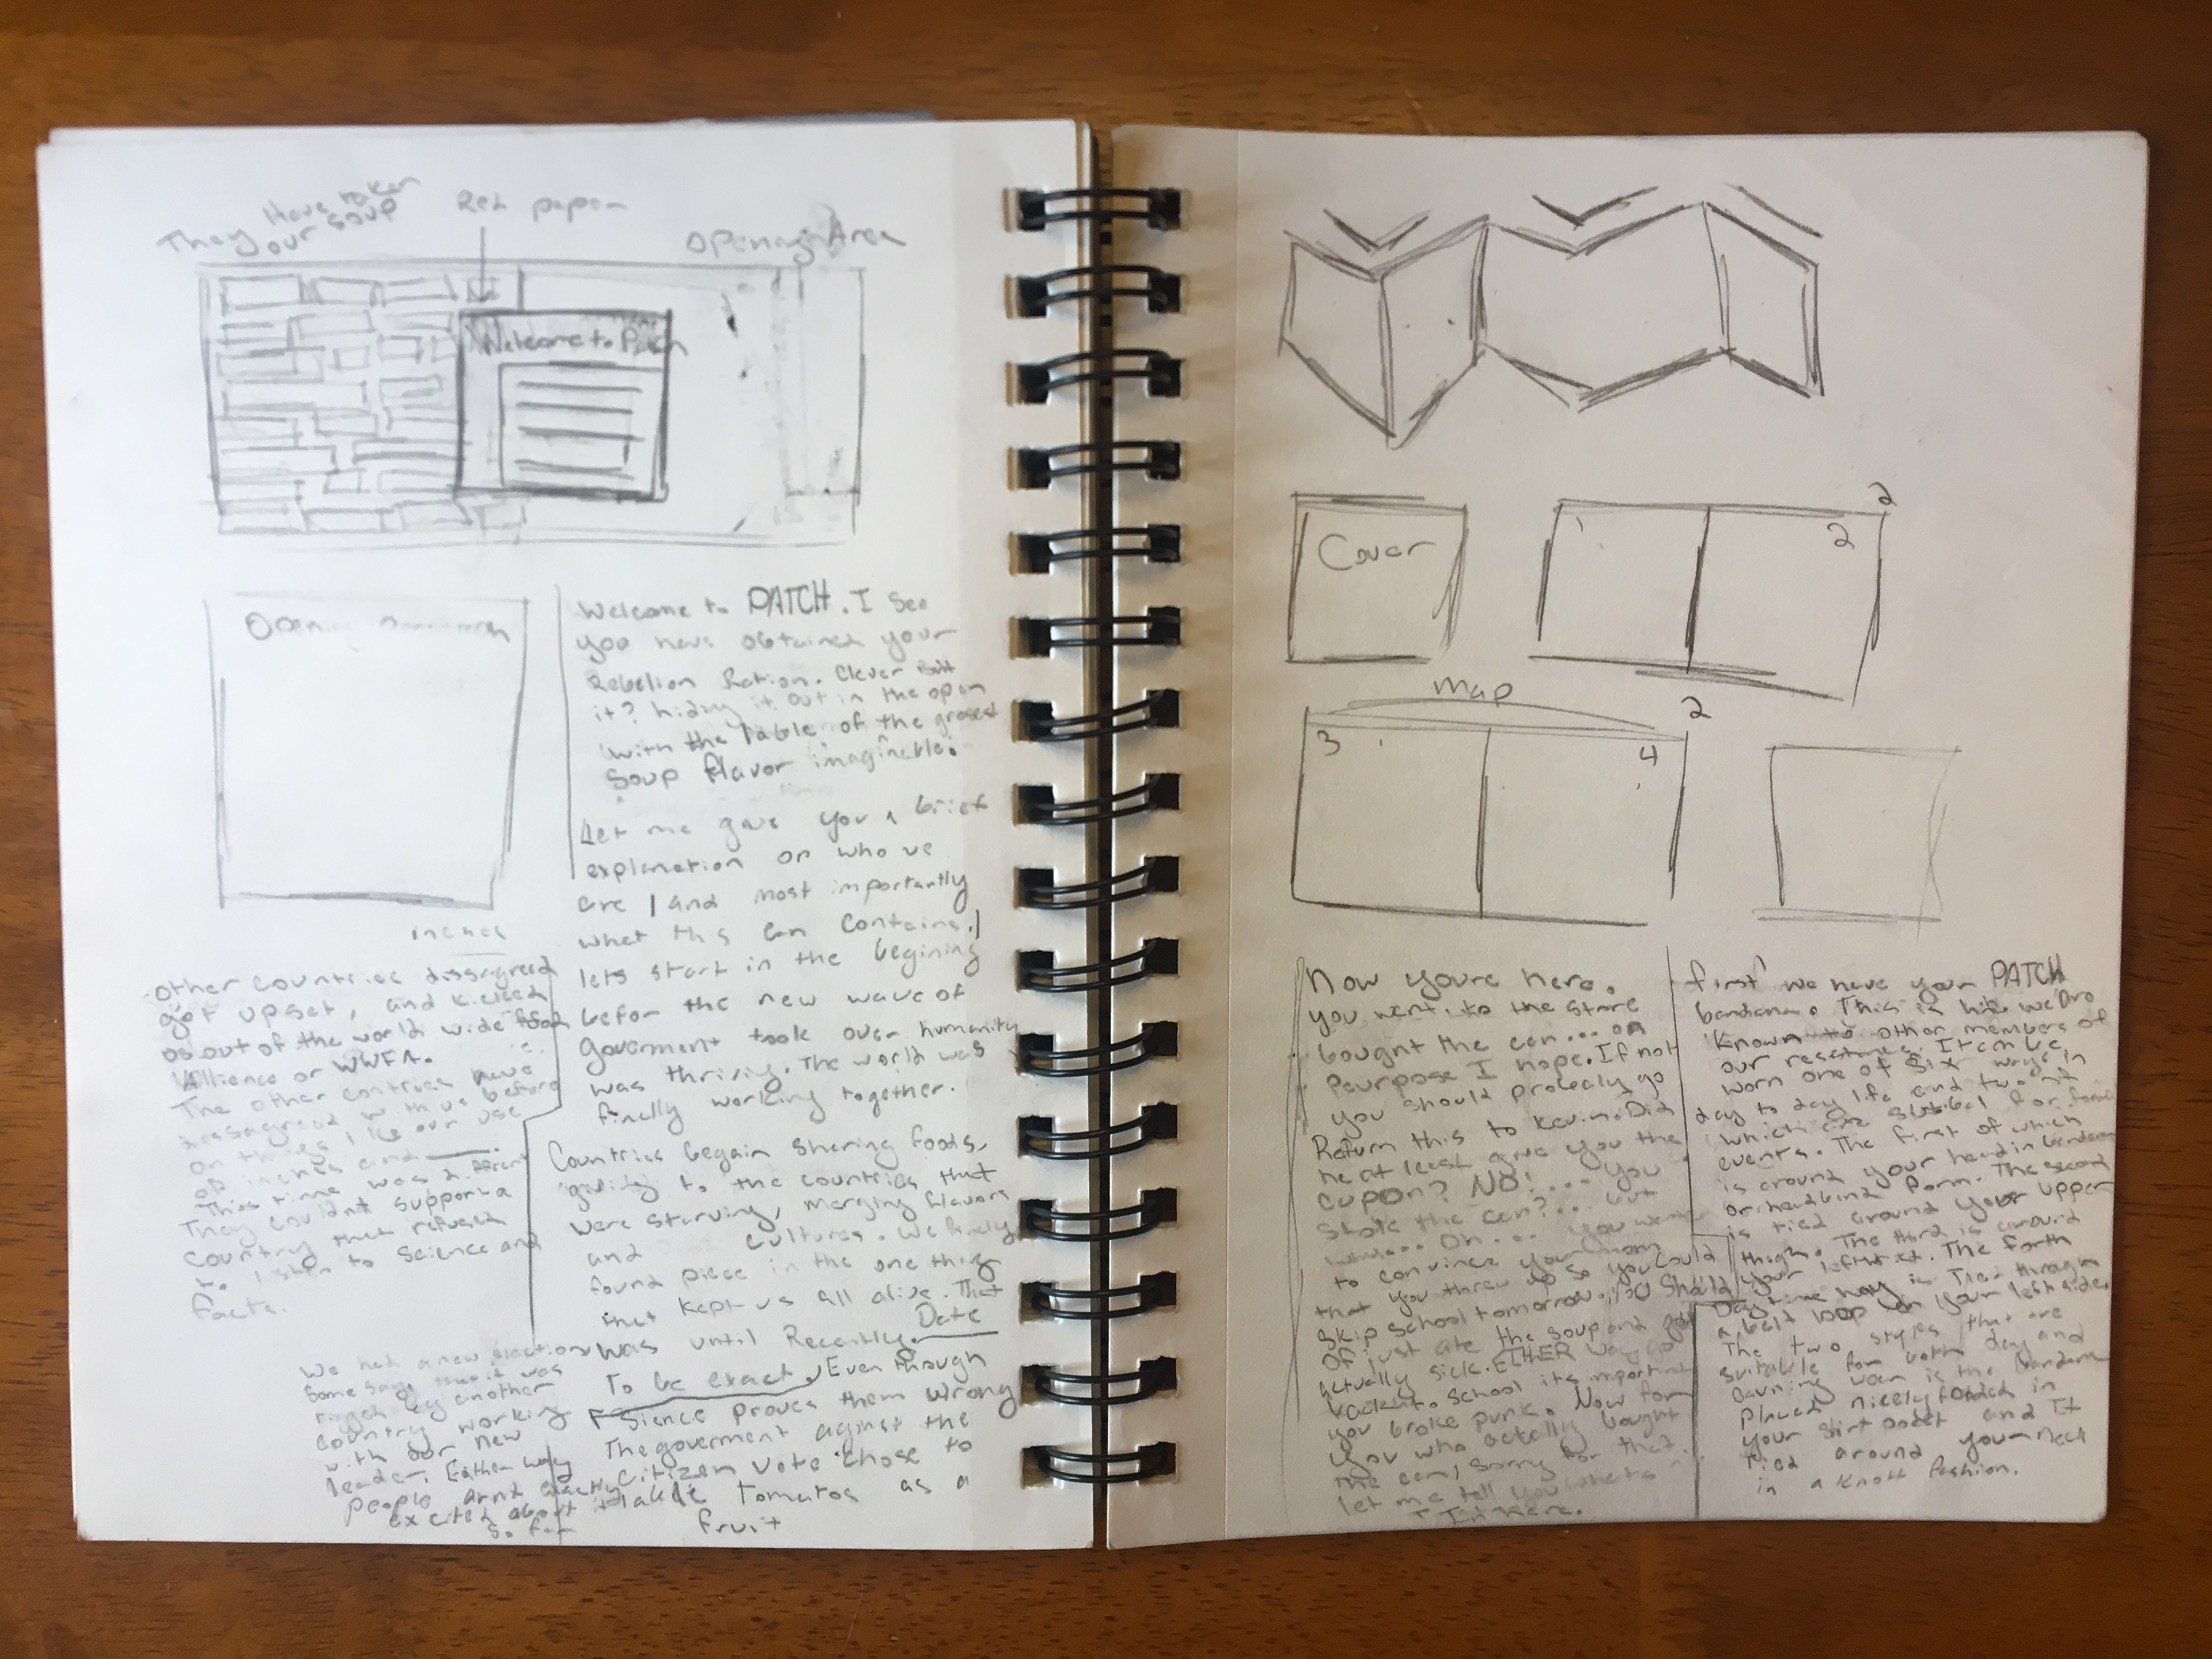 They Have taken
our soup
Red paper
Opening Area
Welcome to Patch
Opening
Welcome to PATCH. I see
you have obtained your
Rebelion Ration. Clever
it? hiding it out in the open
with the lable of the grosest
soup flavor imaginable.
Let me give you a brief
explanation on who we
are / and most importantly
what this can contains./
lets start in the begining
befor the new wave of
goverment took over humanity
was thriving. The world was
finally working together.
Countries begain sharing foods,
giving to the countries that
were starving, merging flavors
and cultures. We finely
found piece in the one thing
that kept us all alive. That
was until Recently. Date
To be exact. Even through
Sience proves them wrong
The goverment against the
citizen vote chose to
lable tomatos as a
fruit
inches
other countries dissagreed
got upset, and kicked
us out of the world wide food
Allience or WWFA.
The other contries have
dissagreed with us before
on things like our use
of inches and
This time was different
They couldnt support a
country that refused
to listen to science and
facts.
We had a new election
some say that it was
riged by another
country working
with our new
leader. Either way
people arnt exactly
excited about it
so far
Cover
1
2
2
map
3
4
2
Now youre here.
you went to the store
bought the can... on
Pourpose I hope. If not
you should probebly go
Return this to Kevin. Did
he at least give you the
cupon? NO!... you
stole the can?... but
Oh... you wanted
to convince your mom
that you threw up so you could
skip school tomorrow. you should
of just ate the soup and got
actually sick. EITHER way go
school its important
you broke punk. Now for
you who actully bought
the can, sorry for that.
let me tell you whats
in here.
first we have your PATCH
bandana. This is how we are
known to other members of
our resistance. It can be
worn one of six ways in
day to day life and two of
which are suitibal for formal
events. The first of which
is around your head in bandana
or headband form. The second
is tied around your upper
thigh. The third is around
your left wrist. The forth
Day time way is Tied through
a belt loop on your left side.
The two styles that are
suitable for both day and
evening wear is the bandana
placed nicely folded in
your shirt pocket and It
Tied around your neck
in a knott fashion.